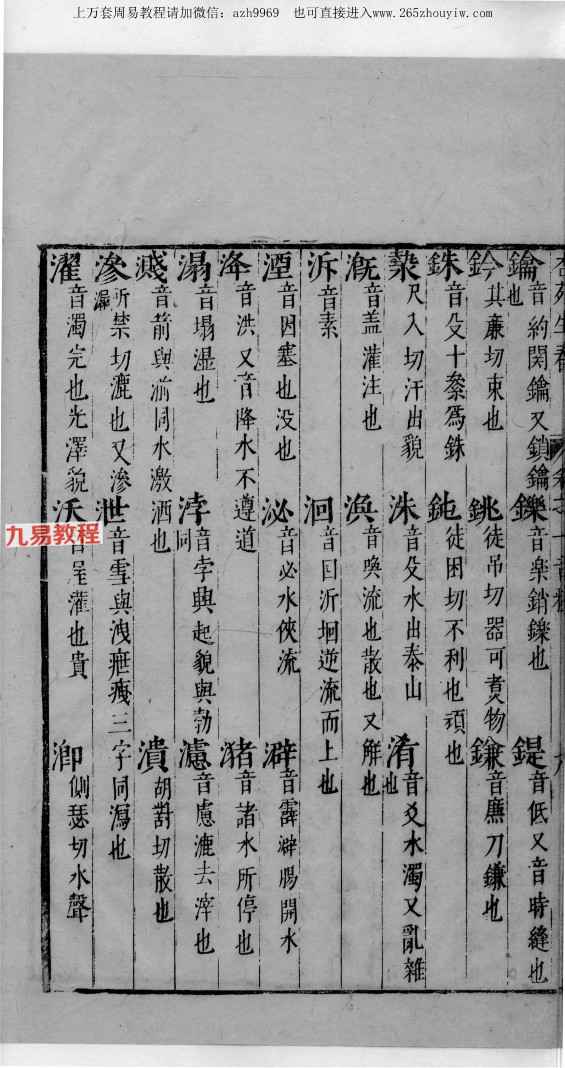 上万套周易教程请加微信：azh9969　也可直接进入www.265zhouyiw.com
杏苑生春
鑰音約関鑰又鎖鑰也　鑠音樂銷鑠也　鍉音低又音時縫也
鈐其廉切束也　銚徒吊切器可煑物　鎌音廉刀鎌也
銖音殳十絫爲銖　鈍徒困切不利也頑也
漐尺入切汗出貌　洙音殳水出泰山　淆音爻水濁又亂雜也
漑音盖灌注也　渙音喚流也散也又解也
泝音素　洄音囘泝洄逆流而上也
湮音因塞也没也　泌音必水俠流　澼音霹澼腸開水
洚音洪又音降水不遵道　猪音諸水所停也
溻音塌湿也　浡音孛興起貌與勃同　濾音慮漉去滓也
濺音箭與湔同水激洒也　潰胡對切散也
滲所禁切漉也又滲漏　泄音雪與洩疶㾻三字同瀉也
濯音濁完也光澤貌　沃　灌也貴　瀄側瑟切水聲
九易教程